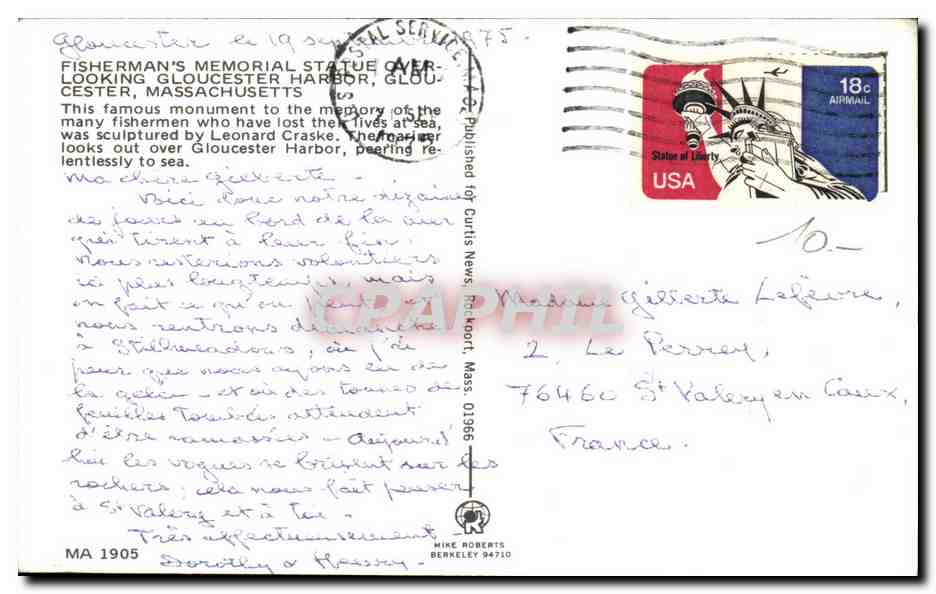 Gloucester le 19 septembre 1975.
FISHERMAN'S MEMORIAL STATUE OVER-
LOOKING GLOUCESTER HARBOR, GLOU-
CESTER, MASSACHUSETTS
This famous monument to the memory of the
many fishermen who have lost their lives at sea,
was sculptured by Leonard Craske. The mariner
looks out over Gloucester Harbor, peering re-
lentlessly to sea.
Ma chère Gilberte -
Voici donc notre dizaine
de jours au bord de la mer
qui tirent à leur fin.
Nous resterions volontiers
ici plus longtemps mais
on fait ce qu'on peut et
nous rentrons dimanche
à Stillmeadows, où j'ai
peur que nous ayons eu de
la gelée - et où des tonnes de
feuilles tombées attendent
d'être ramassées - Aujourd'
hui les vagues se brisent sur les
rochers; cela nous fait penser
à St Valery et à toi -
Très affectueusement -
Dorothy & Henry -
MA 1905
Published for Curtis News, Rockport, Mass. 01966
MIKE ROBERTS
BERKELEY 94710
POSTAL SERVICE MA
AM
18c
AIRMAIL
Statue of Liberty
USA
10.-
Madame Gilberte Lefèvre,
2, Le Perrey,
76460 St Valery en Caux,
France.
CPAPHIL